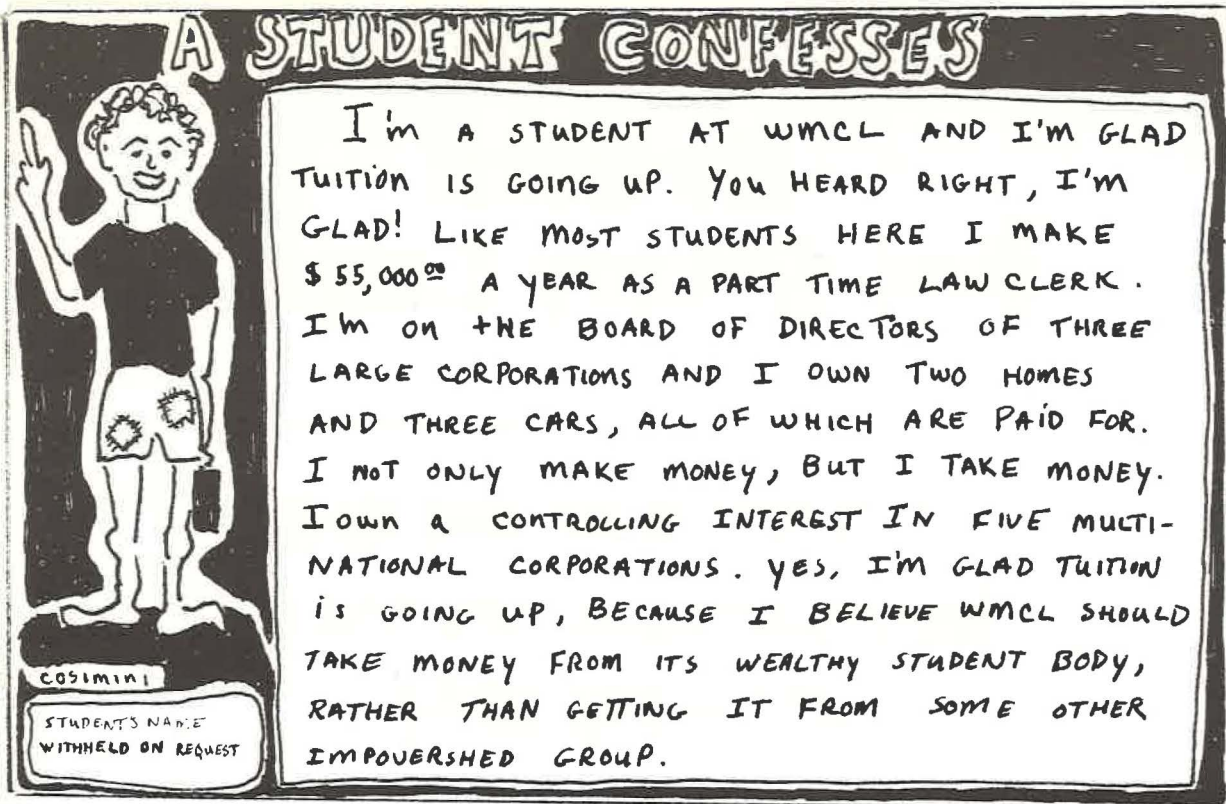 A STUDENT CONFESSES
I'm A STUDENT AT WMCL AND I'M GLAD
TUITION IS GOING UP. YOU HEARD RIGHT, I'M
GLAD! LIKE MOST STUDENTS HERE I MAKE
$55,000.00 A YEAR AS A PART TIME LAW CLERK.
I'm on tHE BOARD OF DIRECTORS OF THREE
LARGE CORPORATIONS AND I OWN TWO HOMES
AND THREE CARS, ALL OF WHICH ARE PAID FOR.
I NOT ONLY MAKE MONEY, BUT I TAKE MONEY.
I own a CONTROLLING INTEREST IN FIVE MULTI-
NATIONAL CORPORATIONS. YES, I'M GLAD TUITION
is GOING UP, BECAUSE I BELIEVE WMCL SHOULD
TAKE MONEY FROM ITS WEALTHY STUDENT BODY,
RATHER THAN GETTING IT FROM SOME OTHER
IMPOVERSHED GROUP.
COSIMINI
STUDENT'S NAME
WITHHELD ON REQUEST